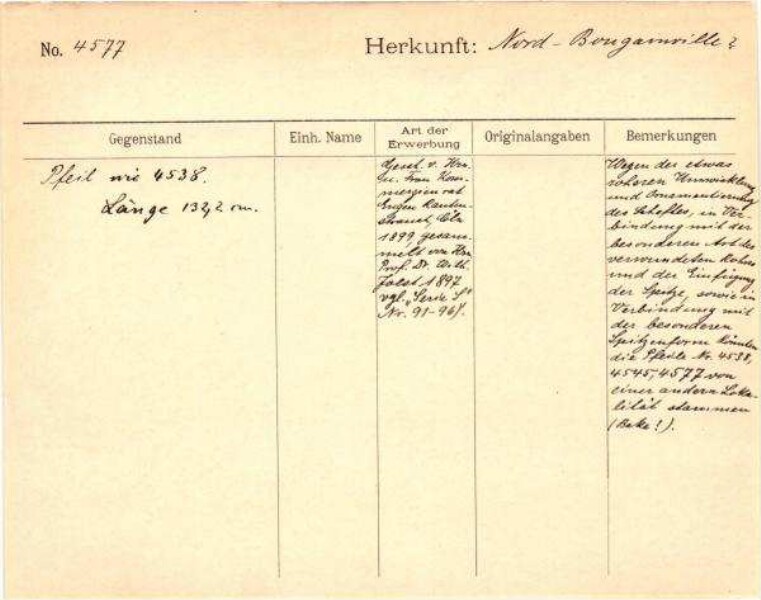 No. 4577
Herkunft: Nord-Bougainville?
Gegenstand
Einh. Name
Art der Erwerbung
Originalangaben
Bemerkungen
Pfeil wie 4538.
Länge 132,2 cm.
Gesch. v. Hrn.
u. Frau Kom-
merzienrat
Eugen Rauten-
strauch, Cöln
1899, gesam-
melt von Hrn
Prof. Dr. Wilh.
Joest 1897
vgl. „Serie S“
Nr. 91-96).
Wegen der etwas
roheren Umwicklung
und Ornamentierung
des Schaftes, in Ver-
bindung mit der
besonderen Art des
verwendeten Rohrs
und der Einfügung
der Spitze, sowie in
Verbindung mit
der besonderen
Spitzenform könnten
die Pfeile Nr. 4538,
4545, 4577 von
einer andern Loka-
lität stammen
(Buka!).